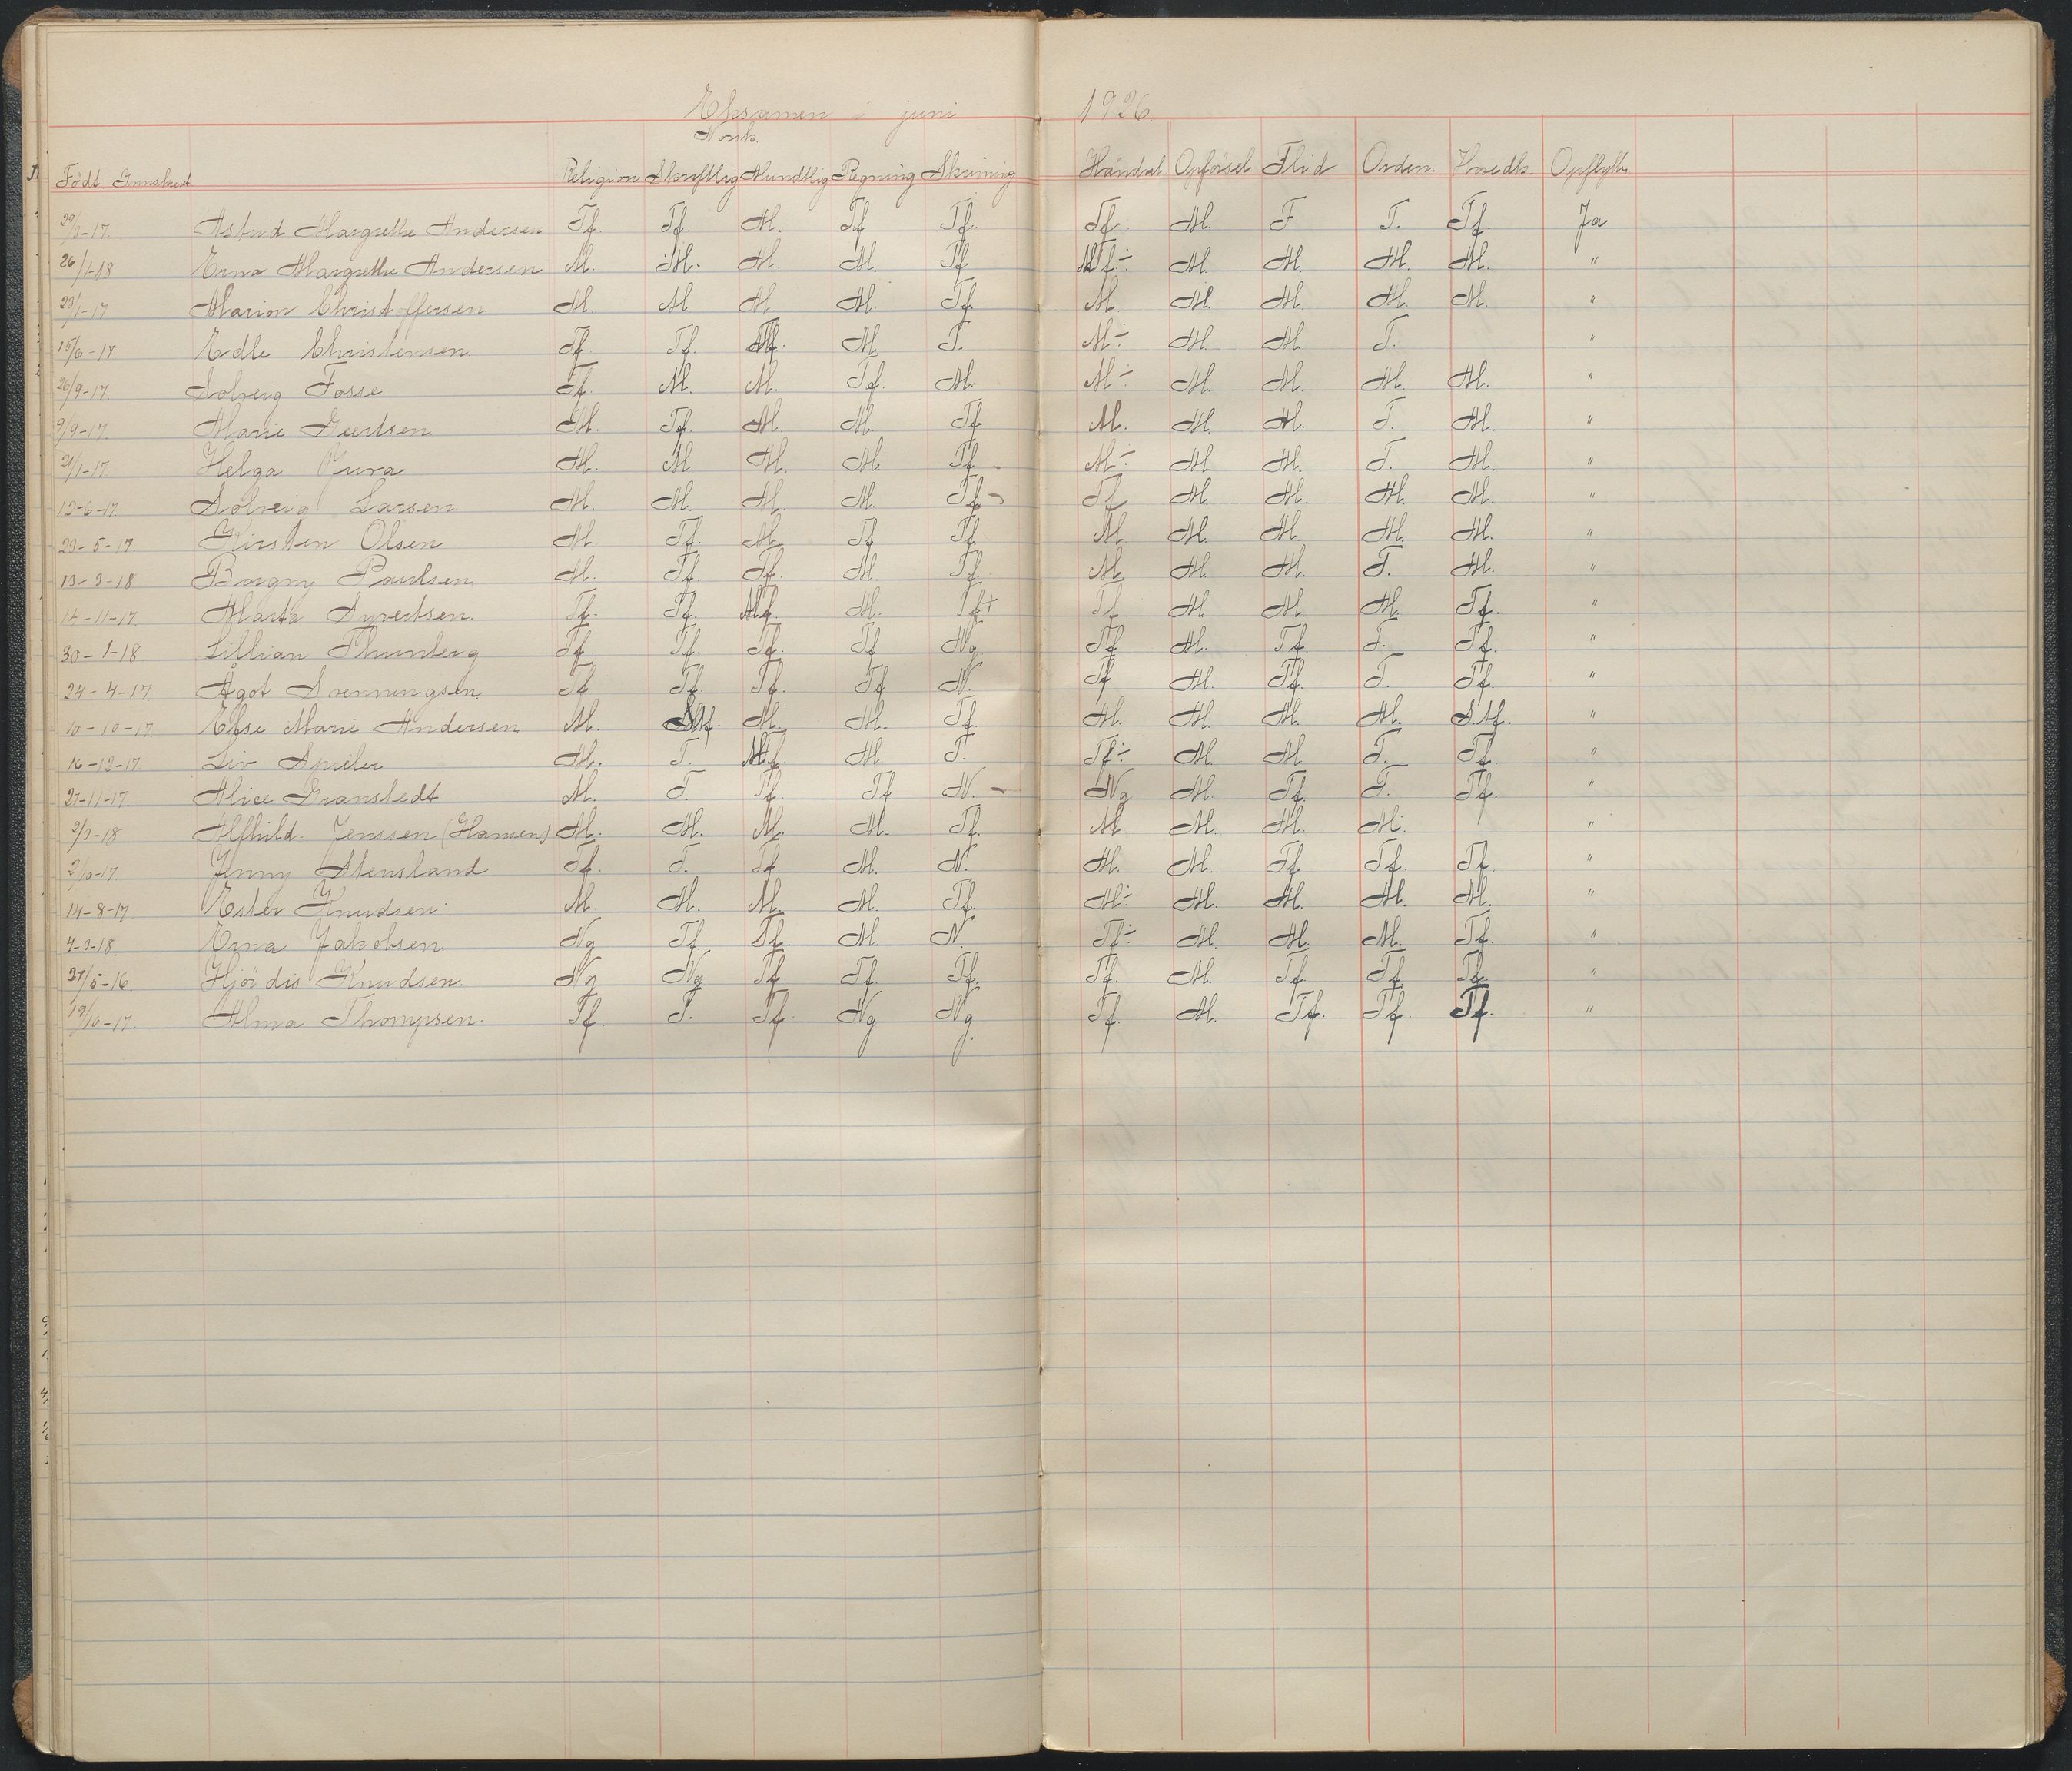 Eksamen i juni 1926.
Norsk.
Födt. Innskrevet Religion Skriftlig Mundtlig Regning Skrivning Händarb. Opförsel Flid Orden. Opflytt.
Astrid Margrethe Andersen Tf. Tf. M. Tf Tf. Tf. M. F T. Tf. Ja
26/1-18 Erna Margrethe Andersen M. M. M. M. Tf M. M. M. M. "
Marion Christoffersen M. M M. M. Tf. M. M. M. M. M. "
15/6-17 Edle Christensen Tf. Tf. M. T. M÷ M. M T. "
26/9-17 Solveig Fosse Tf. M. M. Tf. M. M÷ M. M. M. M. "
9/9-17. Marie Guertsen M. Tf. M. M. Tf M. M. M. T. M. "
Helga Jura M. M. M. M. Tf M÷ M. M. T. M. "
12-6-17 Solveig Larsen M. M. M. M. Tf Tf M. M. M. M. "
Kirsten Olsen M. Tf. M. Tf Tf. M. M. M. M. M. "
Borgny Paulsen M. Tf. Tf. M. Tf. M. M. M. T. M. "
14-11-17. Marta Syvertsen. Tf. Tf. M. Tf+ Tf M. M. M. Tf. "
30-1-18 Lillian Thunberg Tf. Tf. Tf. Tf Ng Tf M. Tf. T. Tf. "
24-4-17. Ågot Svenningsen. Tf Tf. Tf. Tf N. Tf M. Tf. T. Tf. "
10-10-17. Else Marie Andersen M. M. M. Tf. M. M. M. M. "
16-12-17. Liv M. T. M. T. Tf÷ M. M T. Tf. "
27-11-17. Alice Granstedt M. T. Tf Tf N. Ng M. Tf. T. Tf. "
Alfhild Jenssen (Hansen) M. M. M. M. Tf. M. M. M. M. "
2/10-17. Jenny Stensland Tf. T. Tf M. N. M. M. Tf Tf. Tf. "
14-8-17. Ester Knudsen M. M. M. M. Tf. M÷ M. M. M. M. "
Erna Jakobsen Ng Tf Tf. M. N. Tf÷ M. M. M. Tf. "
27/5-16. Hjördis Knudsen. Ng Ng Tf. Tf. Tf. Tf. M. Tf Tf. Tf. "
19/10-17. Alma Thompsen. Tf. T. Tf. Ng Ng Tf. M. Tf. Tf. Tf. "